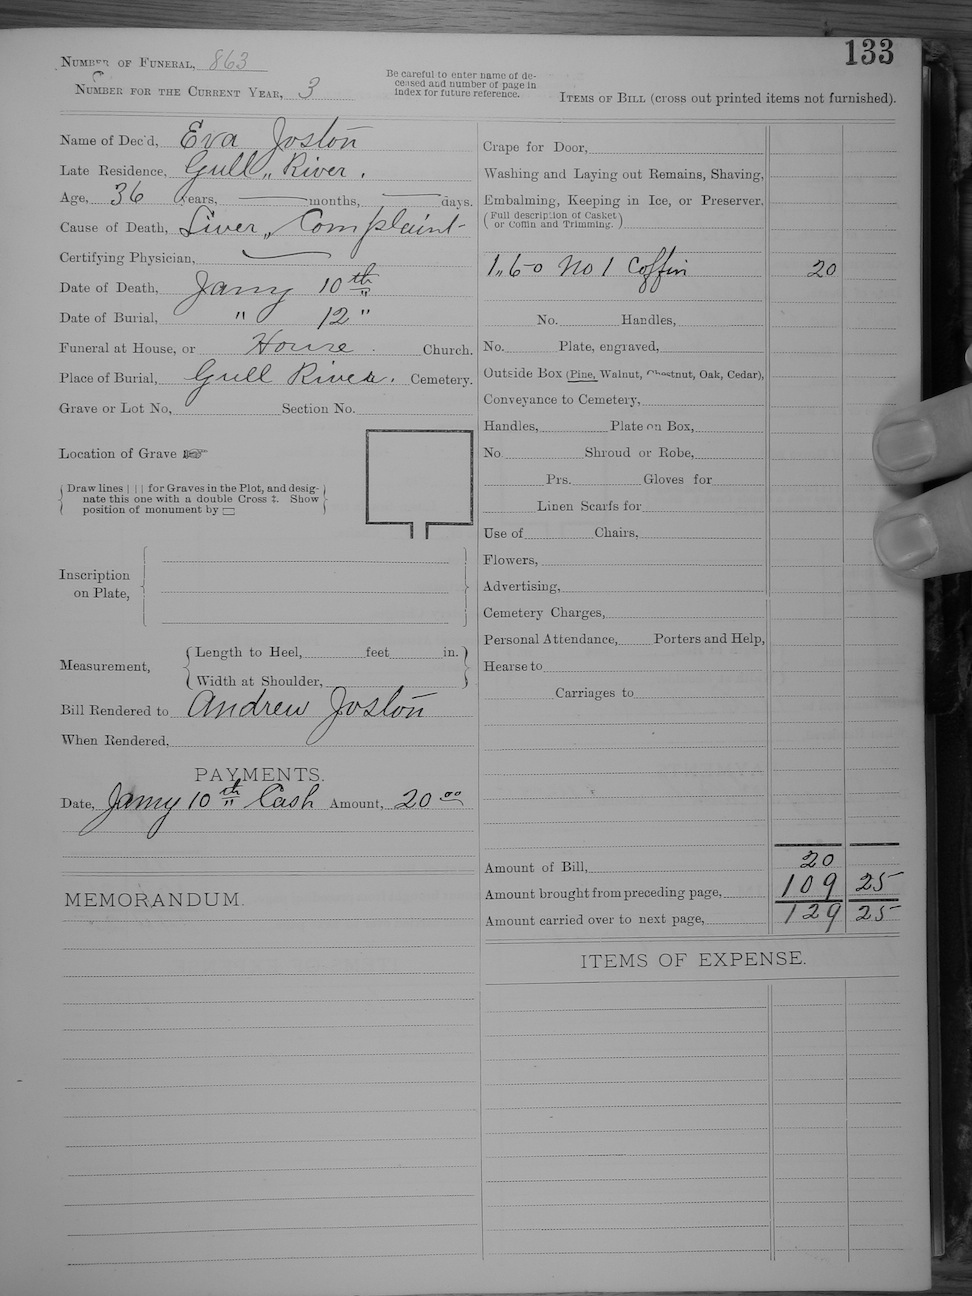 133
Number of Funeral, 863
Number for the Current Year, 3
Be careful to enter name of de-
ceased and number of page in
index for future reference.
Items of Bill (cross out printed items not furnished).
Name of Dec'd, Eva Joslōn
Late Residence, Gull „ River .
Age, 36 years, months, days.
Cause of Death, Liver „ Complaint
Certifying Physician,
Date of Death, Jany 10th
Date of Burial, " 12 "
Funeral at House, or House . Church.
Place of Burial, Gull River. Cemetery.
Grave or Lot No, Section No.
Location of Grave ☞
Draw lines | | | for Graves in the Plot, and desig-
nate this one with a double Cross ‡. Show
position of monument by ▭
Inscription
on Plate,
Measurement,
Length to Heel, feet in.
Width at Shoulder,
Bill Rendered to Andrew Joslōn
When Rendered,
PAYMENTS.
Date, Jany 10th Cash Amount, 20 00
MEMORANDUM.
Crape for Door,
Washing and Laying out Remains, Shaving,
Embalming, Keeping in Ice, or Preserver,
(Full description of Casket
or Coffin and Trimming.)
1„ 6-0 No 1 Coffin 20
No. Handles,
No. Plate, engraved,
Outside Box (Pine, Walnut, Chestnut, Oak, Cedar),
Conveyance to Cemetery,
Handles, Plate on Box,
No. Shroud or Robe,
Prs. Gloves for
Linen Scarfs for
Use of Chairs,
Flowers,
Advertising,
Cemetery Charges,
Personal Attendance, Porters and Help,
Hearse to
Carriages to
Amount of Bill, 20
Amount brought from preceding page, 109 25
Amount carried over to next page, 129 25
ITEMS OF EXPENSE.